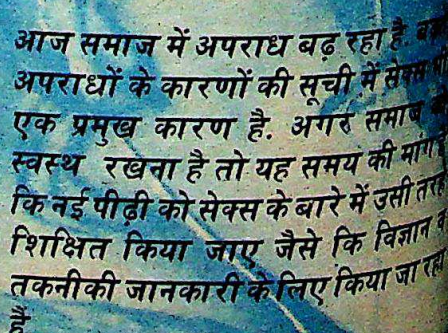 आज समाज में अपराध बढ़ रहा है.
अपराधों के कारणों की सूची में सेक्स
एक प्रमुख कारण है. अगर समाज
स्वस्थ रखना है तो यह समय की मांग
कि नई पीढ़ी को सेक्स के बारे में उसी
शिक्षित किया जाए जैसे कि विज्ञान
तकनीकी जानकारी के लिए किया जा रहा
है